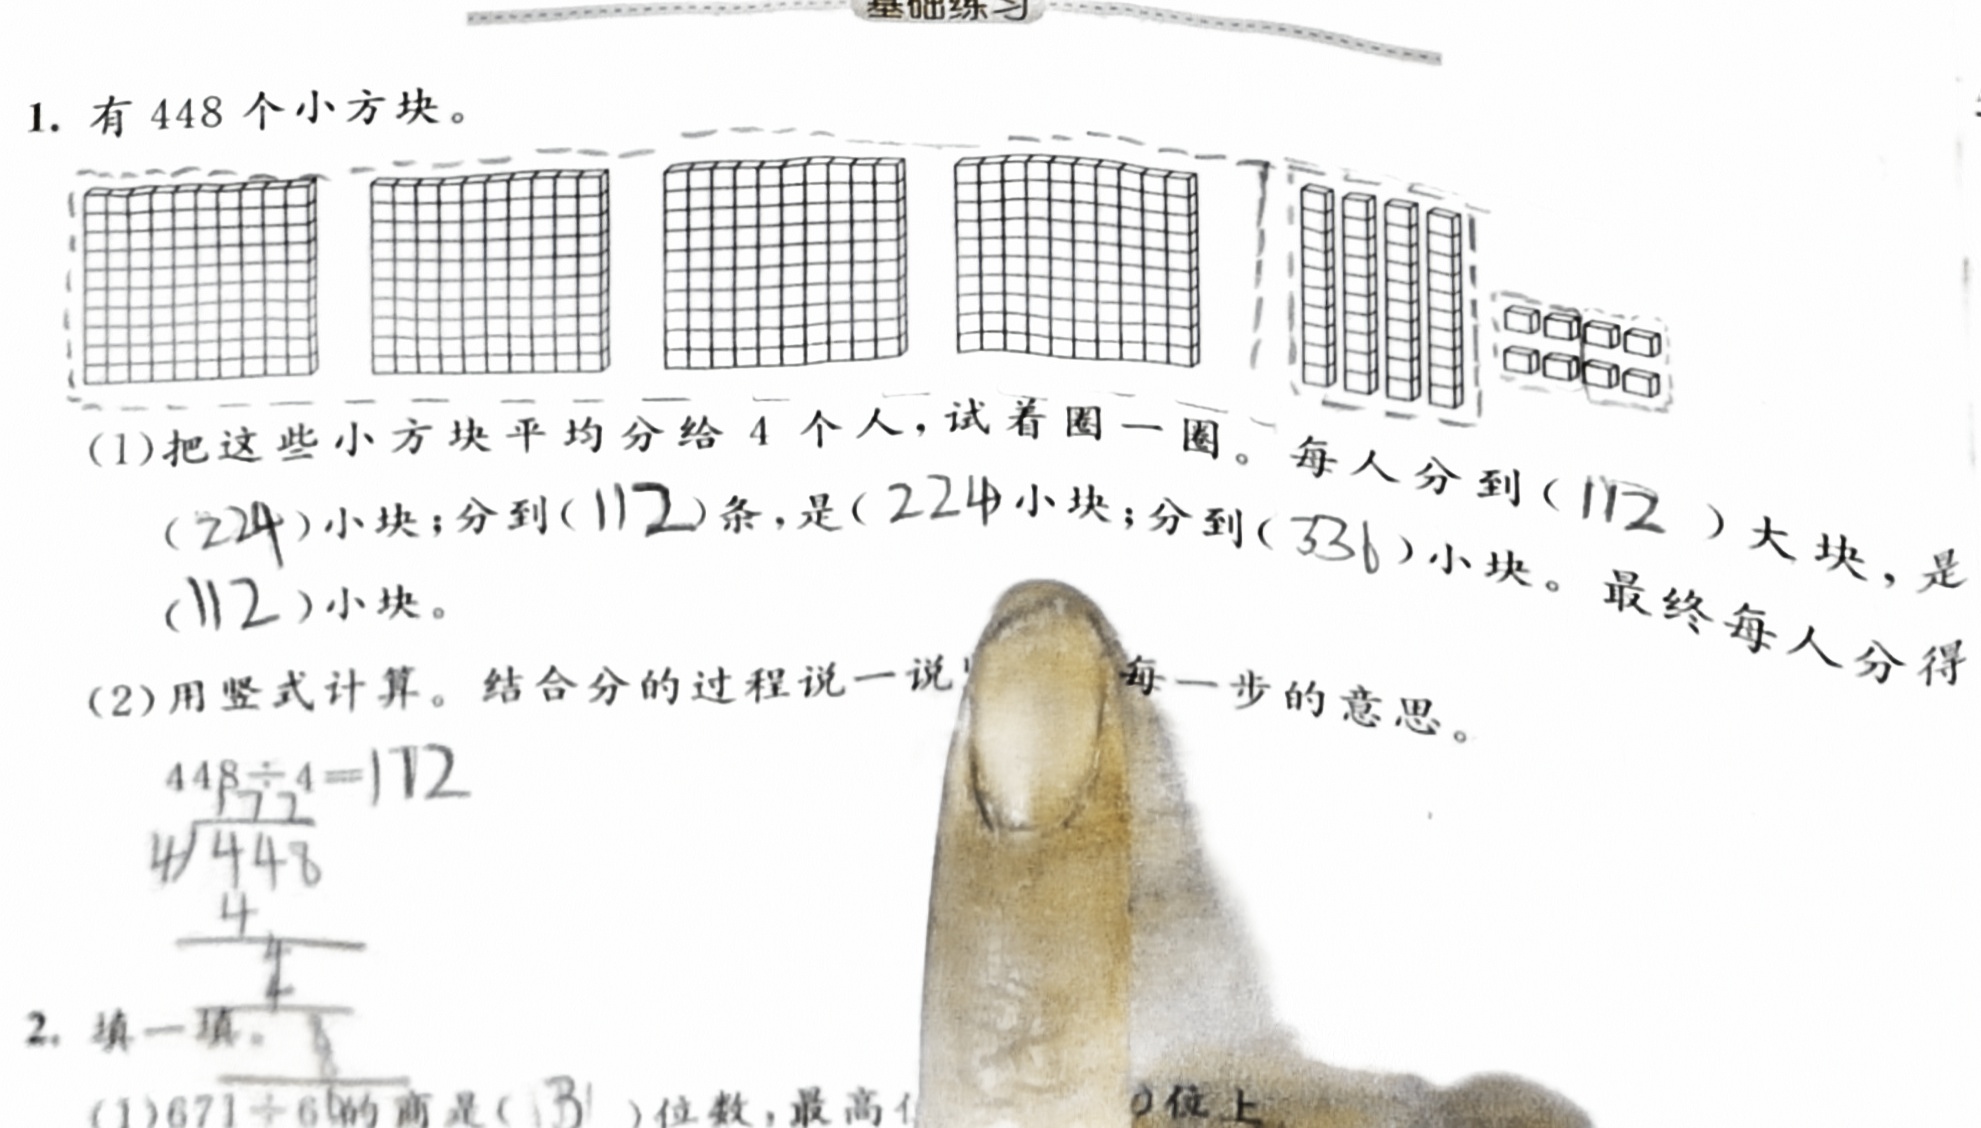 基础练习
1. 有 448 个小方块。
(1)把这些小方块平均分给 4 个人，试着圈一圈。每人分到(112)大块，是
(224)小块；分到(112)条，是(224)小块；分到(336)小块。最终每人分得
(112)小块。
(2)用竖式计算。结合分的过程说一说 每一步的意思。
448÷4=112
112
4)448
4
4
4
8
2. 填一填。
8
(1)671÷6的商是(3)位数，最高 位上